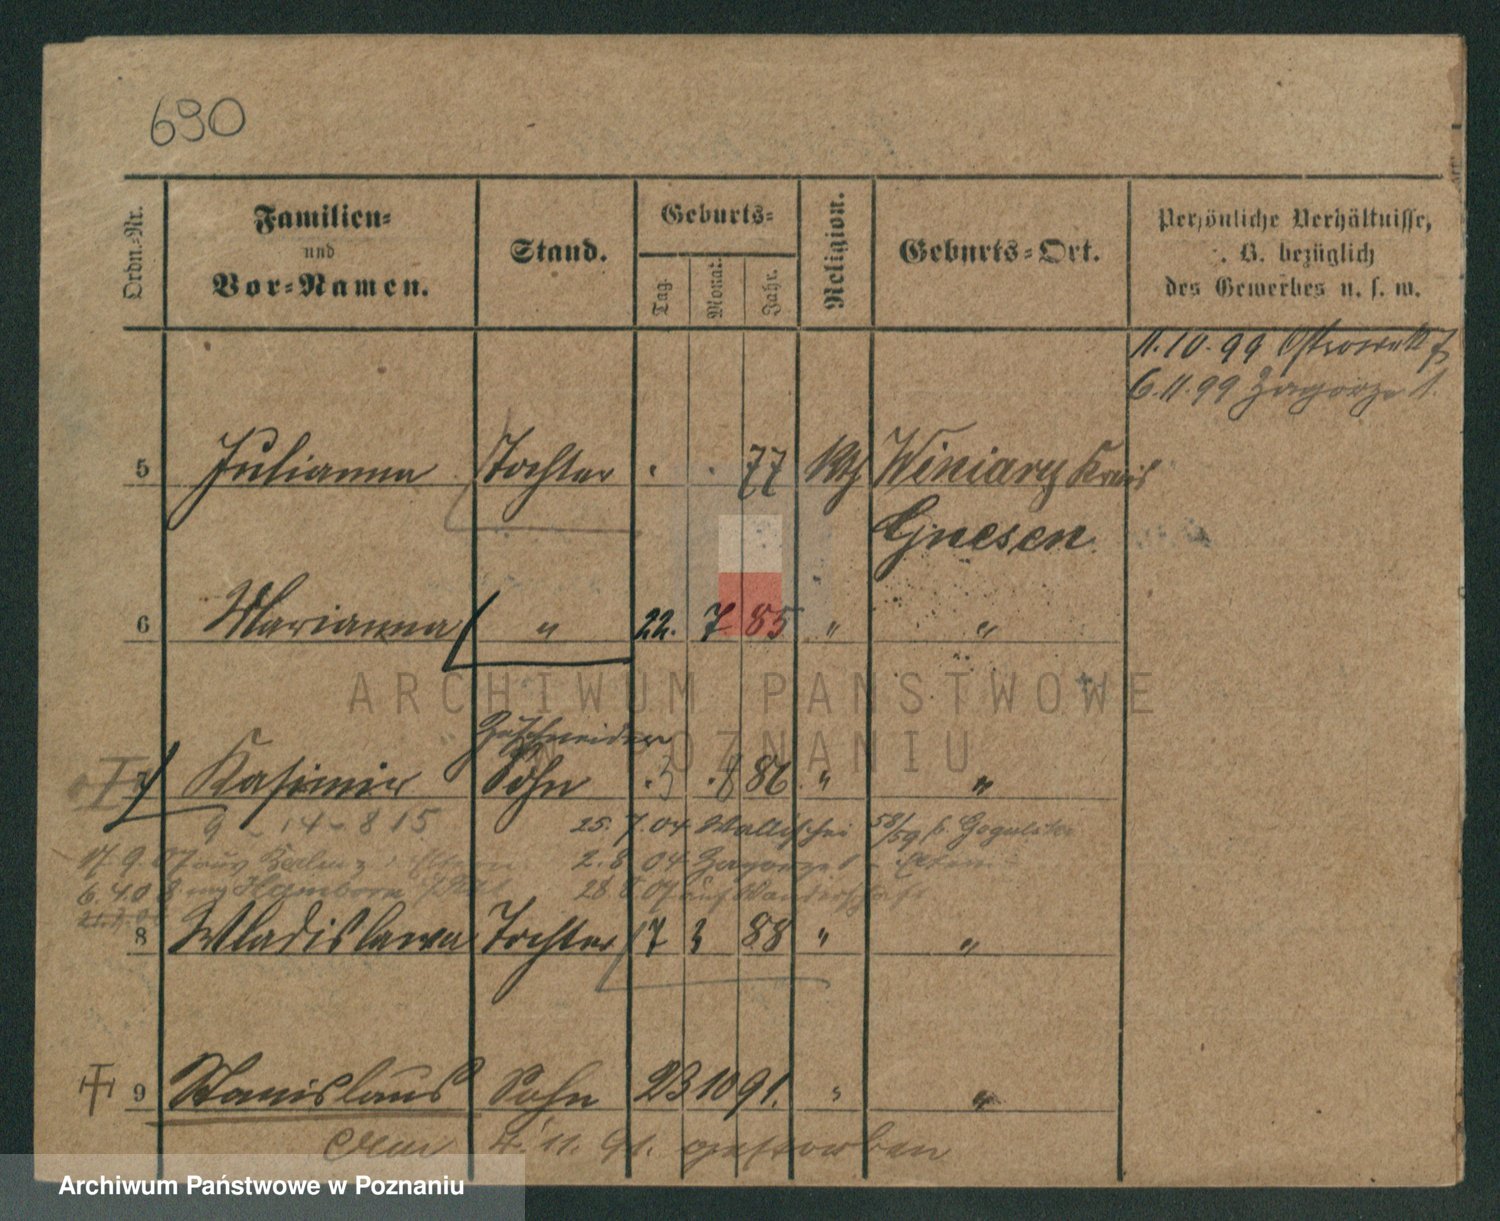 690
Ordn.-Nr.
Familien-
und
Vor-Namen.
Stand.
Geburts-
Tag.
Monat.
Jahr.
Religion.
Geburts-Ort.
Persönliche Verhältnisse,
. B. bezüglich
des Gewerbes u. s. w.
11.10.99
6.11.99 Zagórze 1.
5 Julianna Tochter . . 77 kth Winiary Kreis
Gnesen
6 Marianna " 22. 7 85 " "
Zuschneider
7 Kasimir Sohn 3 8 86 " "
9-14-815 25.7.04 Wallischei 58/59
17.9.07 aus 2.8.04 Zagorze 1 - Eltern
6.4.08 28.8.07 auf Wanderschaft
8 Wladislawa Tochter 17 3 88 " "
9 Stanislaus Sohn 23 10 91. " "
11.91. gestorben
ARCHIWUM PAŃSTWOWE
W POZNANIU
Archiwum Państwowe w Poznaniu